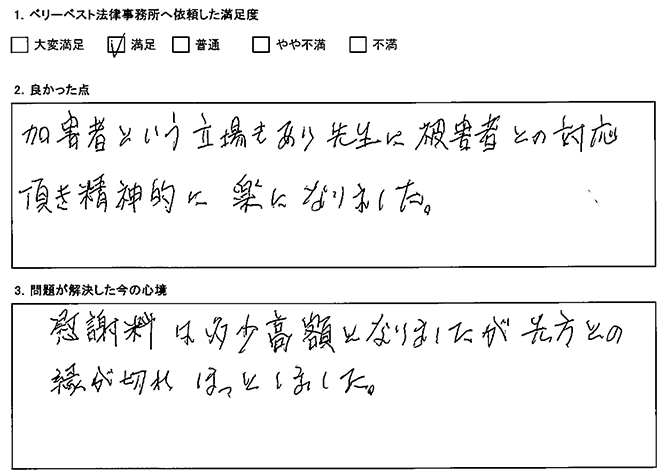 1. ベリーベスト法律事務所へ依頼した満足度
□ 大変満足 ☑ 満足 □ 普通 □ やや不満 □ 不満
2. 良かった点
加害者という立場もあり先生に被害者との対応
頂き精神的に楽になりました。
3. 問題が解決した今の心境
慰謝料は多少高額となりましたが先方との
縁が切れほっとしました。